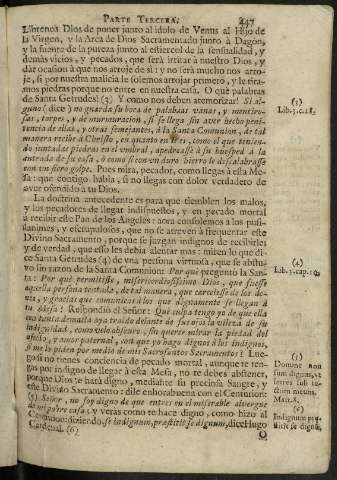 PARTE TERCERA. 247
Librenos Dios de poner junto al idolo de Venus al Hijo de
la Virgen, y la Arca de Dios Sacramentado junto à Dagòn,
y la fuente de la pureza junto al estiercol de la sensualidad, y
demàs vicios, y pecados, que serà irritar à nuestro Dios, y
dàr ocasion à que nos arroje de sì: y no serà mucho nos arro-
je, si por nuestra malicia le solemos arrojar primero, y le tira-
mos piedras porque no entre en nuestra casa. O què palabras
de Santa Getrudes! (3) Y como nos deben atemorizar! Si al-
guno (dice) no guarda su boca de palabras vanas, y mentiro-
sas, torpes, y de murmuracion, si se llega sin aver hecho peni-
tencia de ellas, y otras semejantes, à la Santa Comunion, de tal
manera recibe à Christo, en quanto en èl es, como el que tenien-
do juntadas piedras en el umbral, apedreasse à su huesped à la
entrada de su casa, ò como si con un duro hierro le descalabrasse
con un fiero golpe. Pues mira, pecador, como llegas à esta Me-
sa: que contigo habla, si no llegas con dolor verdadero de
aver ofendido à tu Dios.
La doctrina antecedente es para que tiemblen los malos,
y los pecadores de llegar indispuestos, y en pecado mortal
à recibir este Pan de los Angeles: aora consolemos à los pusi-
lanimes, y escrupulosos, que no se atreven à frequentar este
Divino Sacramento, porque se juzgan indignos de recibirle;
y de verdad, que esso les debia alentar mas: miren lo que di-
ce Santa Getrudes (4) de una persona virtuosa, que se abstu-
vo sin razon de la Santa Comunion: Por què preguntò la San-
ta: Por què permitiste, misericordiosissimo Dios, que fuesse
aquella persona tentada, de tal manera, que careciesse de los do-
nes, y gracias que comunicas à los que dignamente se llegan à
tu Mesa? Respondiò el Señor: Què culpa tengo yo de que ella
indignidad, como velo obscuro, sin querer mirar la piedad del
oficio, y amor paternal, con que yo hago dignos à los indignos,
si me lo piden por medio de mis Sacrosantos Sacramentos? Lue-
go si no tienes conciencia de pecado mortal, aunque te ten-
gas por indigno de llegar à esta Mesa, no te debes abstener,
porque Dios te harà digno, mediante su preciosa Sangre, y
este Divino Sacramento: dile enhorabuena con el Centurion:
(5) Señor, no soy digno de que entres en el miserable alvergue
de mi pobre casa; y veràs como te hace digno, como hizo al
Centurion: diziendo, se indignum, præstitit se dignum, dice Hugo
Cardenal. (6)
Q
(3)
Lib. 3. c. 18.
(4)
Lib. 3. cap. 10.
(5)
Domine non
sum dignus, ut
intres sub tec-
tum meum.
Mat. 8.
(6)